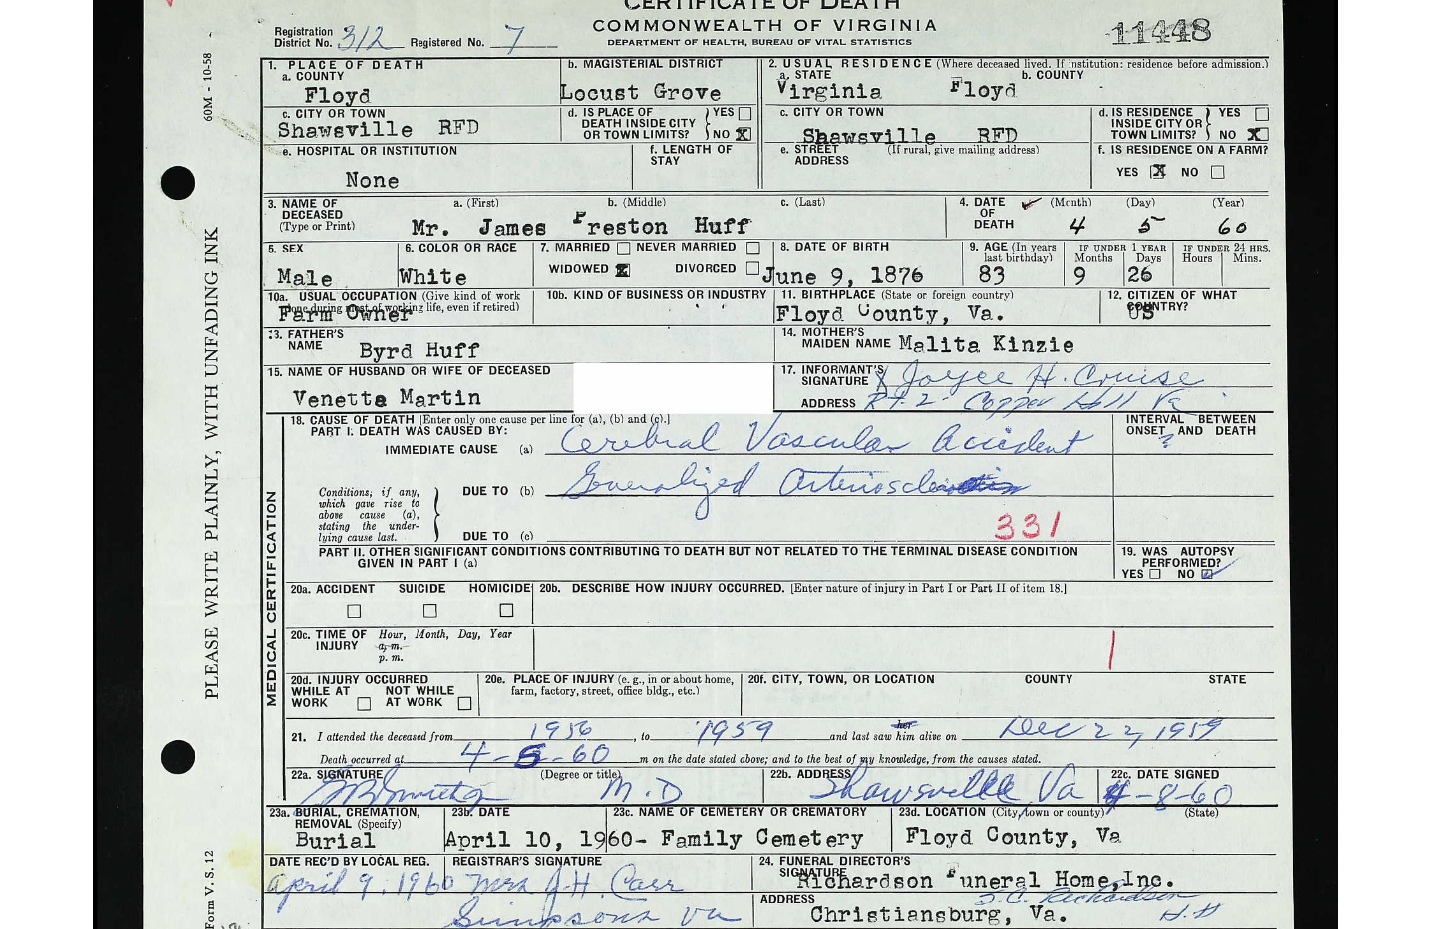 CERTIFICATE OF DEATH
COMMONWEALTH OF VIRGINIA
DEPARTMENT OF HEALTH, BUREAU OF VITAL STATISTICS
Registration District No. 312 Registered No. 7
11448
60M - 10-58
PLEASE WRITE PLAINLY, WITH UNFADING INK
Form V. S. 12
1. PLACE OF DEATH
a. COUNTY
Floyd
b. MAGISTERIAL DISTRICT
Locust Grove
2. USUAL RESIDENCE (Where deceased lived. If institution: residence before admission.)
a. STATE
Virginia
b. COUNTY
Floyd
c. CITY OR TOWN
Shawsville RFD
d. IS PLACE OF DEATH INSIDE CITY OR TOWN LIMITS? YES NO X
c. CITY OR TOWN
Shawsville RFD
d. IS RESIDENCE INSIDE CITY OR TOWN LIMITS? YES NO X
e. HOSPITAL OR INSTITUTION
None
f. LENGTH OF STAY
e. STREET ADDRESS (If rural, give mailing address)
f. IS RESIDENCE ON A FARM?
YES X NO
3. NAME OF DECEASED (Type or Print)
a. (First) b. (Middle) c. (Last)
Mr. James Preston Huff
4. DATE OF DEATH (Month) (Day) (Year)
4 5 60
5. SEX
Male
6. COLOR OR RACE
White
7. MARRIED NEVER MARRIED
WIDOWED X DIVORCED
8. DATE OF BIRTH
June 9, 1876
9. AGE (In years last birthday)
83
IF UNDER 1 YEAR
Months Days
9 26
IF UNDER 24 HRS.
Hours Mins.
10a. USUAL OCCUPATION (Give kind of work done during most of working life, even if retired)
Farm Owner
10b. KIND OF BUSINESS OR INDUSTRY
11. BIRTHPLACE (State or foreign country)
Floyd County, Va.
12. CITIZEN OF WHAT COUNTRY?
US
13. FATHER'S NAME
Byrd Huff
14. MOTHER'S MAIDEN NAME Malita Kinzie
15. NAME OF HUSBAND OR WIFE OF DECEASED
Venetta Martin
17. INFORMANT'S SIGNATURE X Joyce H. Cruise
ADDRESS Rt. 2 - Copper Hill Va
18. CAUSE OF DEATH [Enter only one cause per line for (a), (b) and (c).]
PART I. DEATH WAS CAUSED BY:
IMMEDIATE CAUSE (a) Cerebral Vascular Accident
INTERVAL BETWEEN ONSET AND DEATH
?
Conditions, if any, which gave rise to above cause (a), stating the underlying cause last.
DUE TO (b) Generalized Arteriosclerosis
DUE TO (c)
331
PART II. OTHER SIGNIFICANT CONDITIONS CONTRIBUTING TO DEATH BUT NOT RELATED TO THE TERMINAL DISEASE CONDITION GIVEN IN PART I (a)
19. WAS AUTOPSY PERFORMED?
YES NO
MEDICAL CERTIFICATION
20a. ACCIDENT SUICIDE HOMICIDE
20b. DESCRIBE HOW INJURY OCCURRED. [Enter nature of injury in Part I or Part II of item 18.]
20c. TIME OF INJURY Hour, Month, Day, Year
a. m.
p. m.
20d. INJURY OCCURRED
WHILE AT WORK NOT WHILE AT WORK
20e. PLACE OF INJURY (e. g., in or about home, farm, factory, street, office bldg., etc.)
20f. CITY, TOWN, OR LOCATION COUNTY STATE
21. I attended the deceased from 1956, to 1959 and last saw her him alive on Dec 22, 1959
Death occurred at 4-5-60 m on the date stated above; and to the best of my knowledge, from the causes stated.
22a. SIGNATURE (Degree or title)
M.D
22b. ADDRESS
Shawsville Va
22c. DATE SIGNED
4-8-60
23a. BURIAL, CREMATION, REMOVAL (Specify)
Burial
23b. DATE
April 10, 1960-
23c. NAME OF CEMETERY OR CREMATORY
Family Cemetery
23d. LOCATION (City, town or county) (State)
Floyd County, Va
DATE REC'D BY LOCAL REG.
April 9, 1960
REGISTRAR'S SIGNATURE
Mrs J. H. Carr
Simpsons Va
24. FUNERAL DIRECTOR'S SIGNATURE
Richardson Funeral Home, Inc.
ADDRESS
Christiansburg, Va.